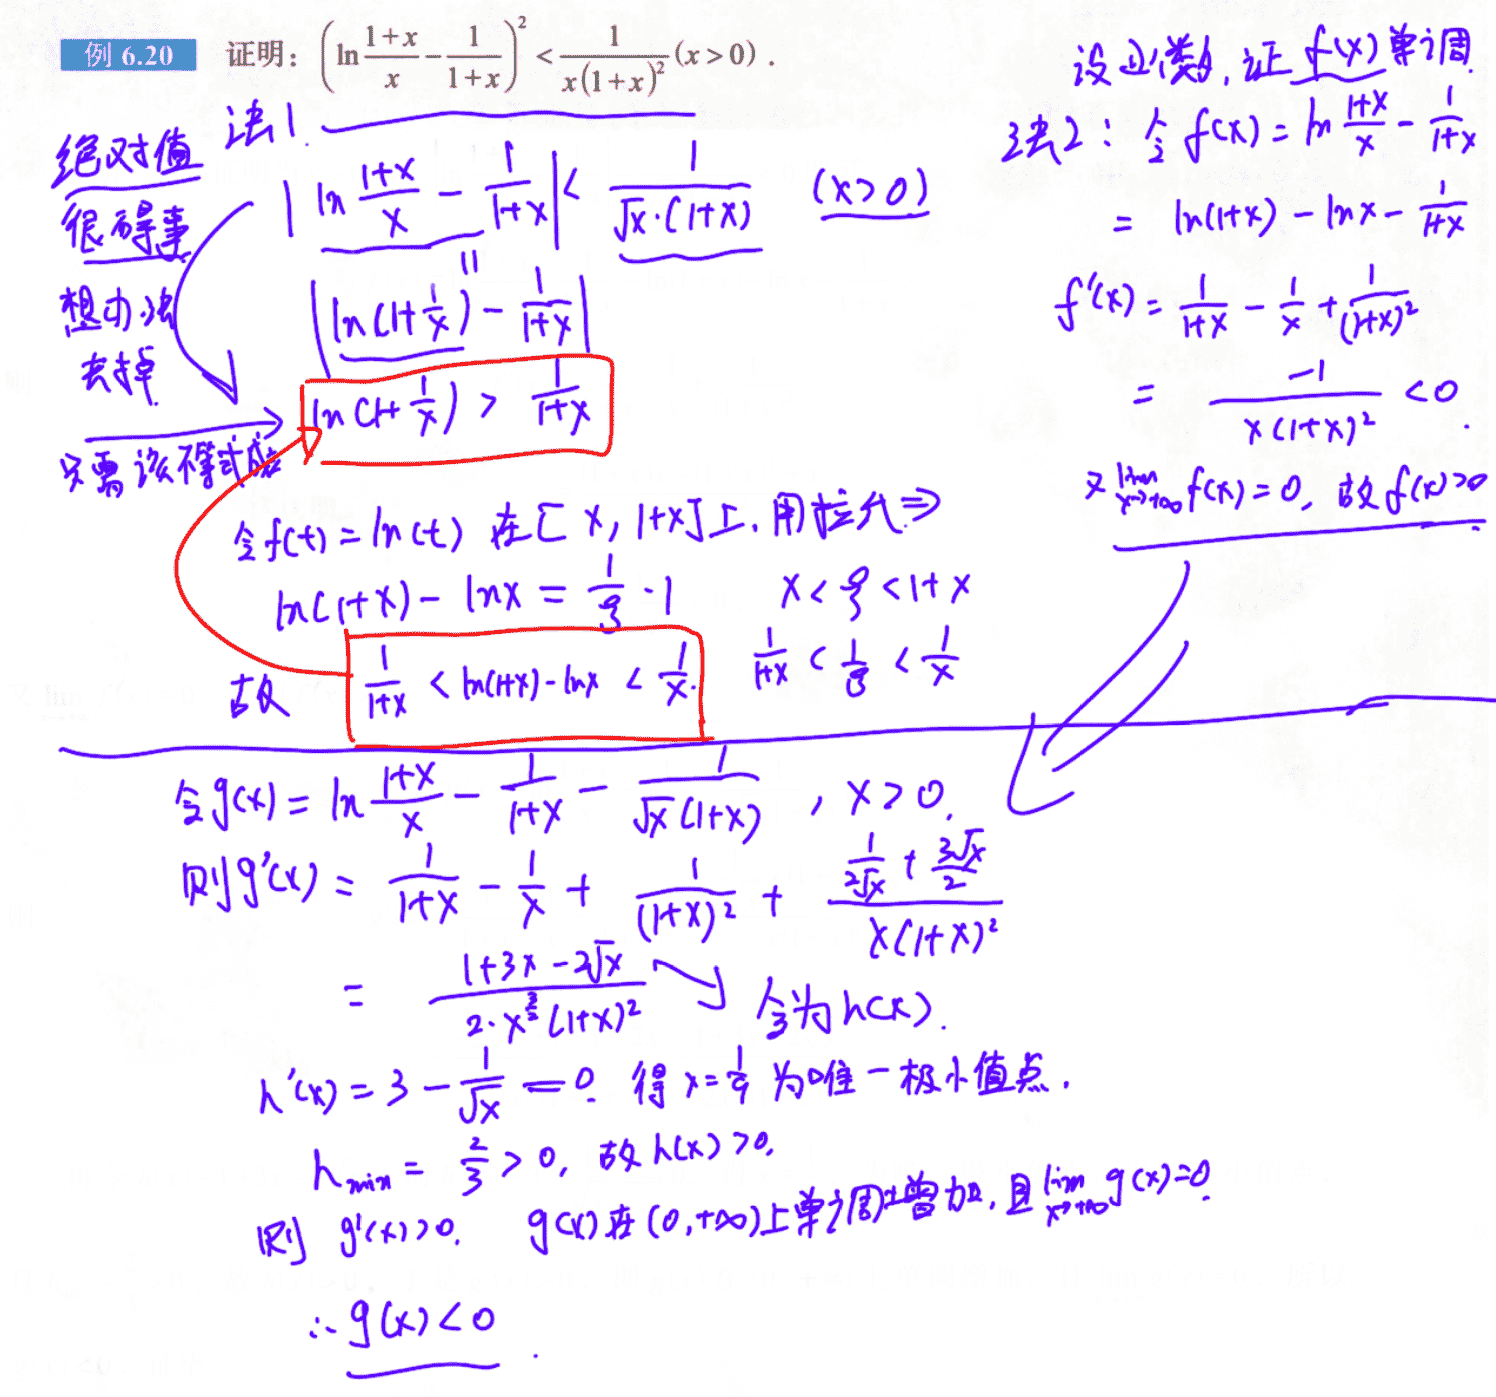 例 6.20 证明：(ln (1+x)/x - 1/(1+x))² < 1/(x(1+x)²) (x>0).
法1
绝对值
很碍事
想办法
去掉
| ln (1+x)/x - 1/(1+x) | < 1/(√x·(1+x)) (x>0)
| ln(1+1/x) - 1/(1+x) |
ln(1+1/x) > 1/(1+x)
只需该不等式成立
令f(t)=ln(t) 在[x, 1+x]上, 用拉氏⇒
ln(1+x) - lnx = 1/ξ · 1 x<ξ<1+x
1/(1+x) < 1/ξ < 1/x
故 1/(1+x) < ln(1+x)-lnx < 1/x.
设 函数, 证 f(x) 单调
法2: 令 f(x) = ln (1+x)/x - 1/(1+x)
= ln(1+x) - lnx - 1/(1+x)
f'(x) = 1/(1+x) - 1/x + 1/(1+x)²
= -1/(x(1+x)²) <0.
又 lim x→+∞ f(x)=0, 故f(x)>0
令g(x) = ln (1+x)/x - 1/(1+x) - 1/(√x(1+x)), x>0.
则g'(x) = 1/(1+x) - 1/x + 1/(1+x)² + (1/(2√x) + 3√x/2)/(x(1+x)²)
= (1+3x-2√x)/(2·x^(3/2)(1+x)²) 令为h(x).
h'(x) = 3 - 1/√x = 0. 得 x=1/9 为唯一极小值点.
h min = 2/3 > 0, 故h(x)>0,
则 g'(x)>0. g(x)在(0,+∞)上单调增加, 且 lim x→+∞ g(x)=0.
∴ g(x)<0.